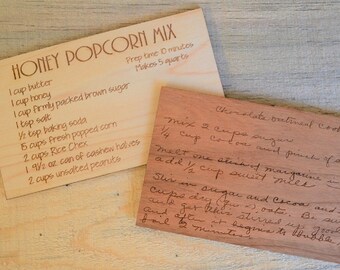 HONEY POPCORN MIX
Prep time 10 minutes
Makes 5 quarts
1 cup butter
1 cup honey
1 cup firmly packed brown sugar
1 tsp salt
½ tsp baking soda
15 cups fresh popped corn
2 cups Rice Chex
1 9½ oz can of cashew halves
2 cups unsalted peanuts
Chocolate Oatmeal
Mix 2 cups sugar
cup cocoa and pinch of
Melt one stick of margarine
add ½ cup sweet milk
Stir in sugar and cocoa and
cups dry
and get this stirred
and
boil minutes